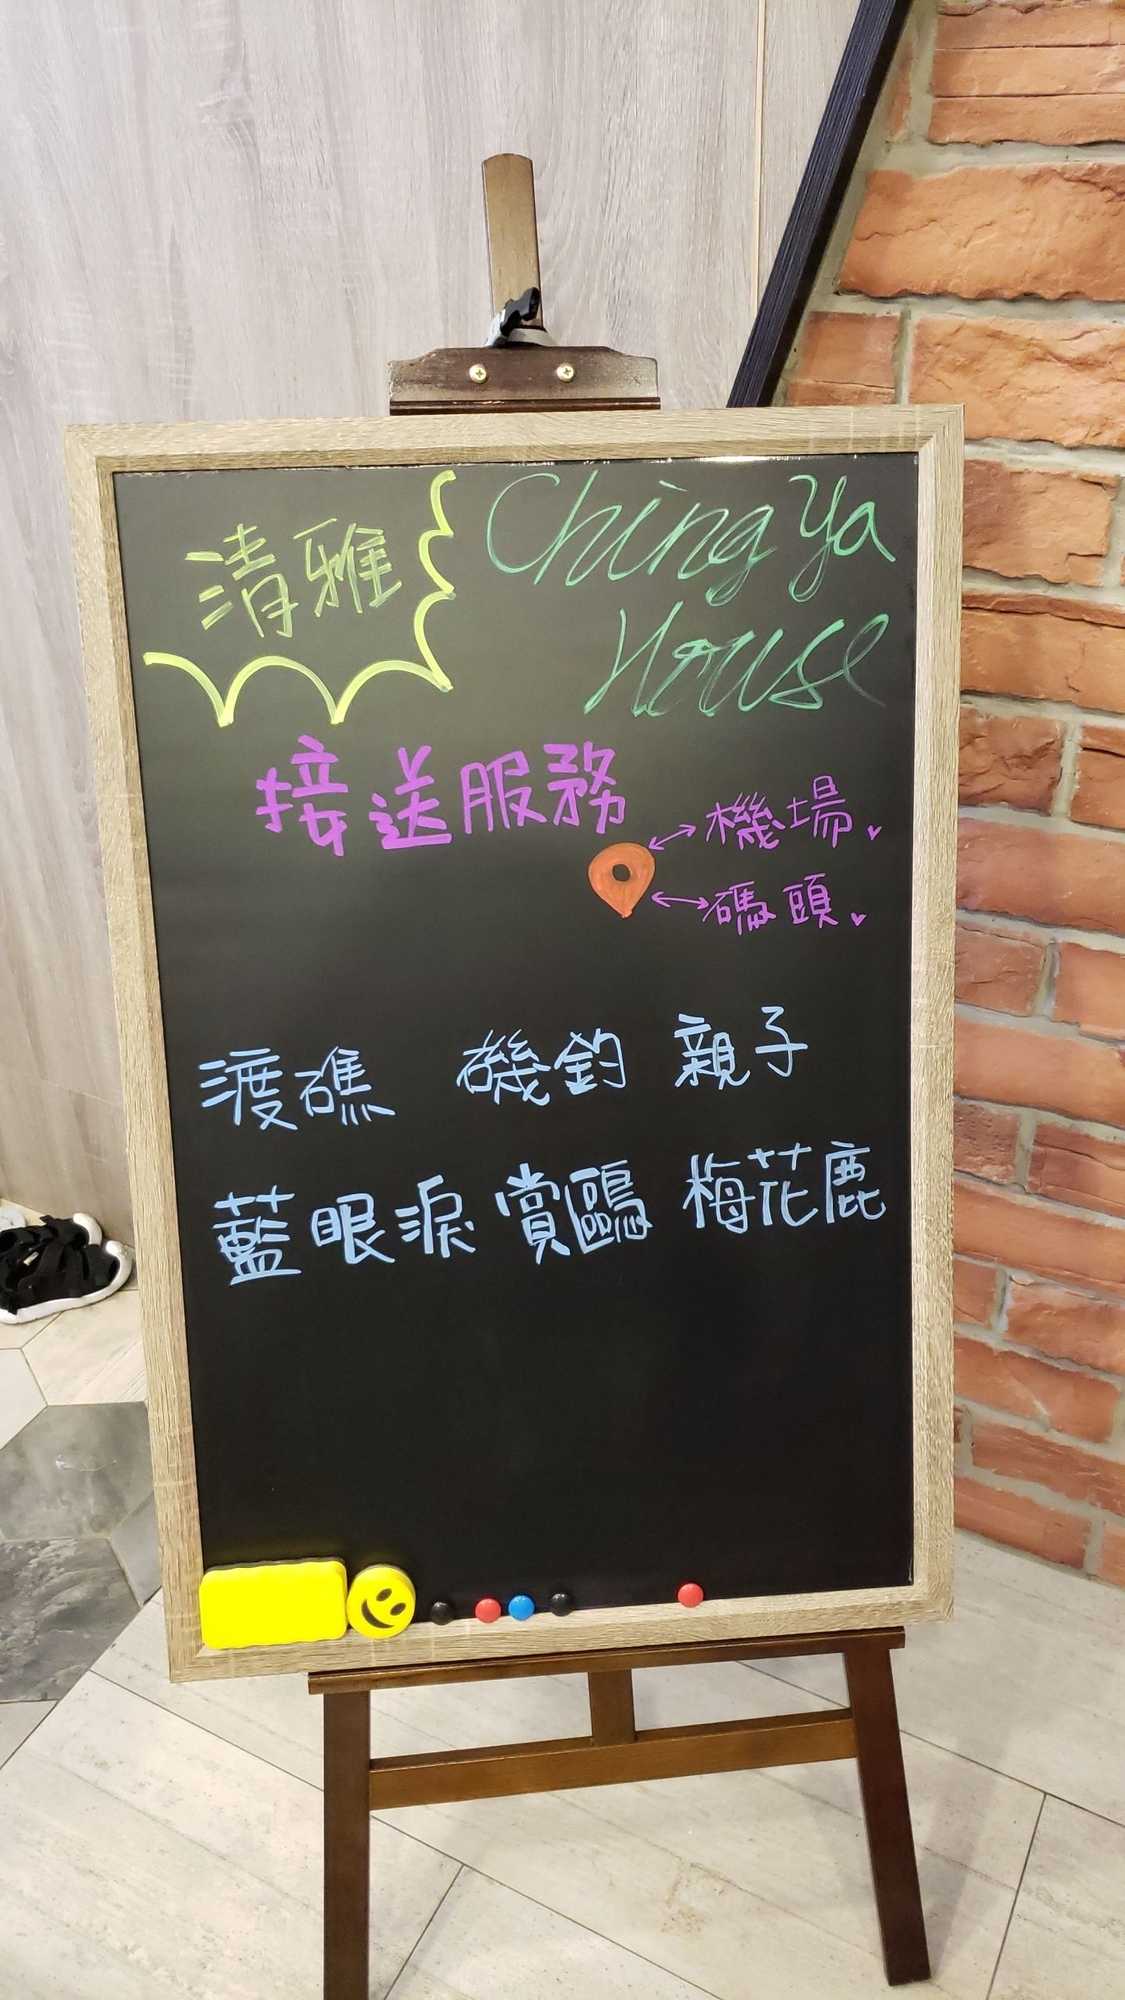 清雅
Ching Ya
House
接送服務
機場
碼頭
渡礁 磯釣 親子
藍眼淚 賞鷗 梅花鹿